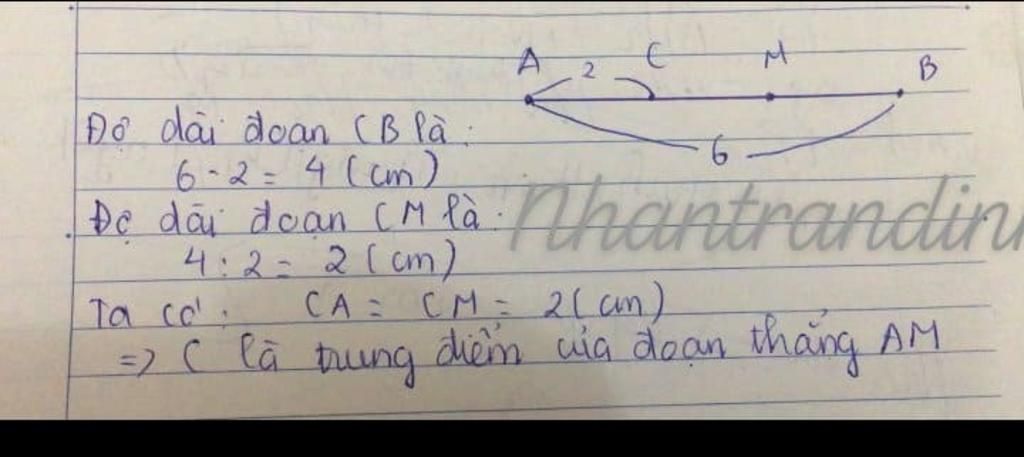 A 2 C M B
6
Độ dài đoạn CB là:
6 - 2 = 4 (cm)
Độ dài đoạn CM là:
4 : 2 = 2 (cm)
Ta có: CA = CM = 2 (cm)
=> C là trung điểm của đoạn thẳng AM
nhantrandin